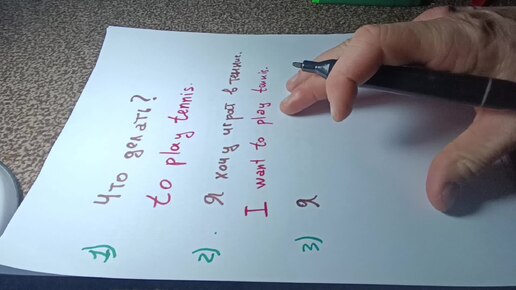 1) Что делать?
to play tennis.
2). Я хочу играт в теннис.
I want to play tennis.
3) Я